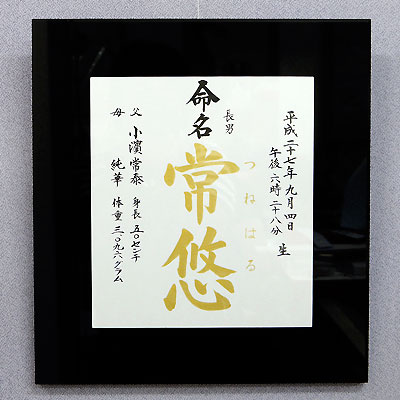 平成二十七年九月四日
午後六時二十八分 生
長男
命名
つねはる
常悠
父 小濱常泰
母 純華
身長 五〇センチ
体重 三、〇九六グラム